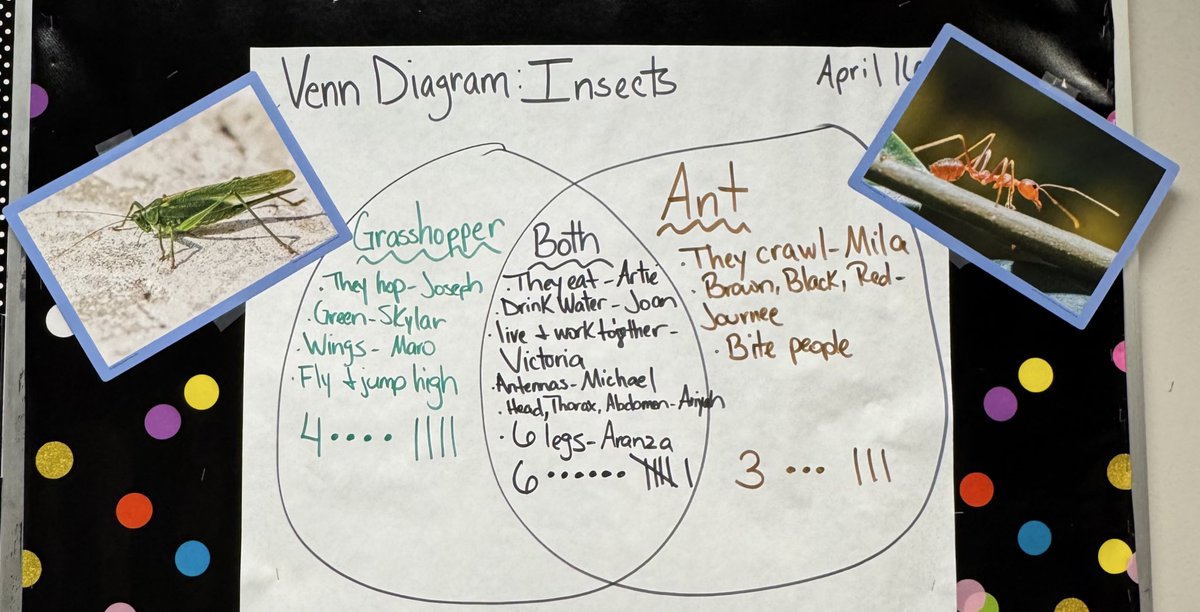 Venn Diagram: Insects
April 16
Grasshopper
· They hop - Joseph
· Green - Skylar
· Wings - Maro
· Fly + jump high
4 ····  ||||
Both
· They eat - Artie
Drink Water - Joan
· live + work together -
Victoria
· Antennas - Michael
· Head, Thorax, Abdomen - Aniyah
· 6 legs - Aranza
6 ······ |||||  |
Ant
· They crawl - Mila
· Brown, Black, Red -
Journee
· Bite people
3 ··· |||